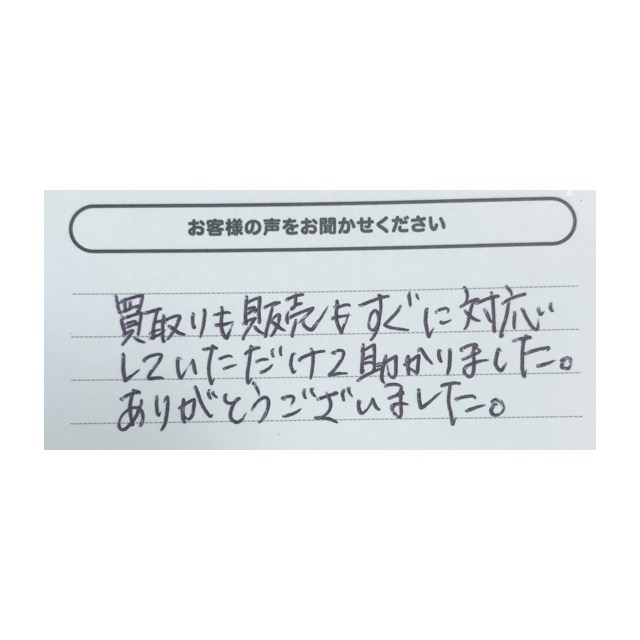 お客様の声をお聞かせください
買取りも販売もすぐに対応
していただけて助かりました。
ありがとうございました。